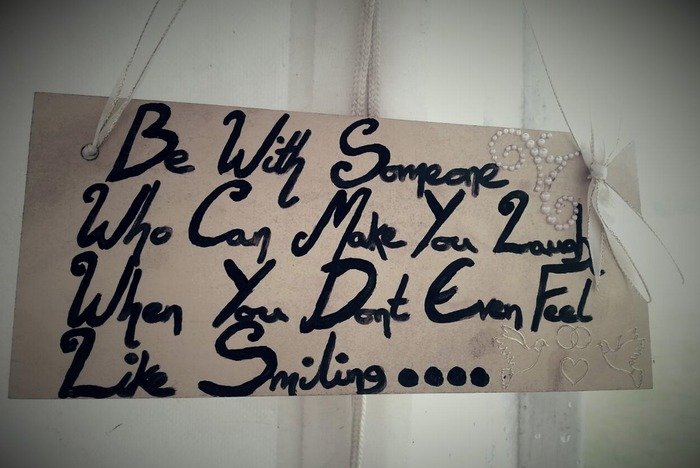 Be With Someone
Who Can Make You Laugh
When You Dont Even Feel
Like Smiling....